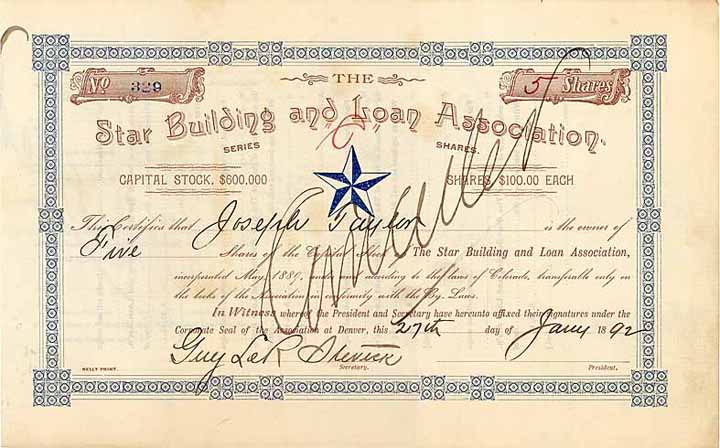 THE
No 329
5 Shares
Star Building and Loan Association.
SERIES "C" SHARES.
CAPITAL STOCK, $600,000 SHARES $100.00 EACH
Cancelled
This Certifies that Joseph Taylor is the owner of
Five Shares of the Capital Stock of The Star Building and Loan Association,
incorporated May, 1889, under and according to the laws of Colorado, transferable only on
the books of the Association in conformity with the By-Laws.
In Witness whereof the President and Secretary have hereunto affixed their signatures under the
Corporate Seal of the Association at Denver, this 27th day of Jany 1892
Guy LeR Stevick
Secretary. President.
KELLY PRINT.